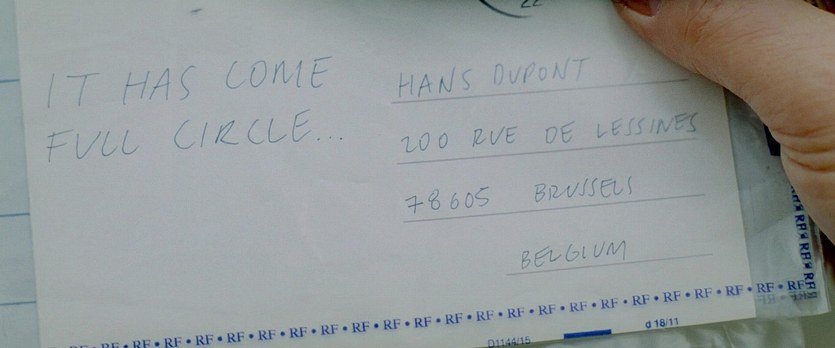 22
IT HAS COME
FULL CIRCLE...
HANS DUPONT
200 RUE DE LESSINES
78605 BRUSSELS
BELGIUM
RF • RF • RF • RF • RF • RF • RF • RF • RF • RF • RF • RF • RF • RF • RF • RF • RF • RF • RF • RF • RF • RF • RF • RF
D1144/15
d 16/11